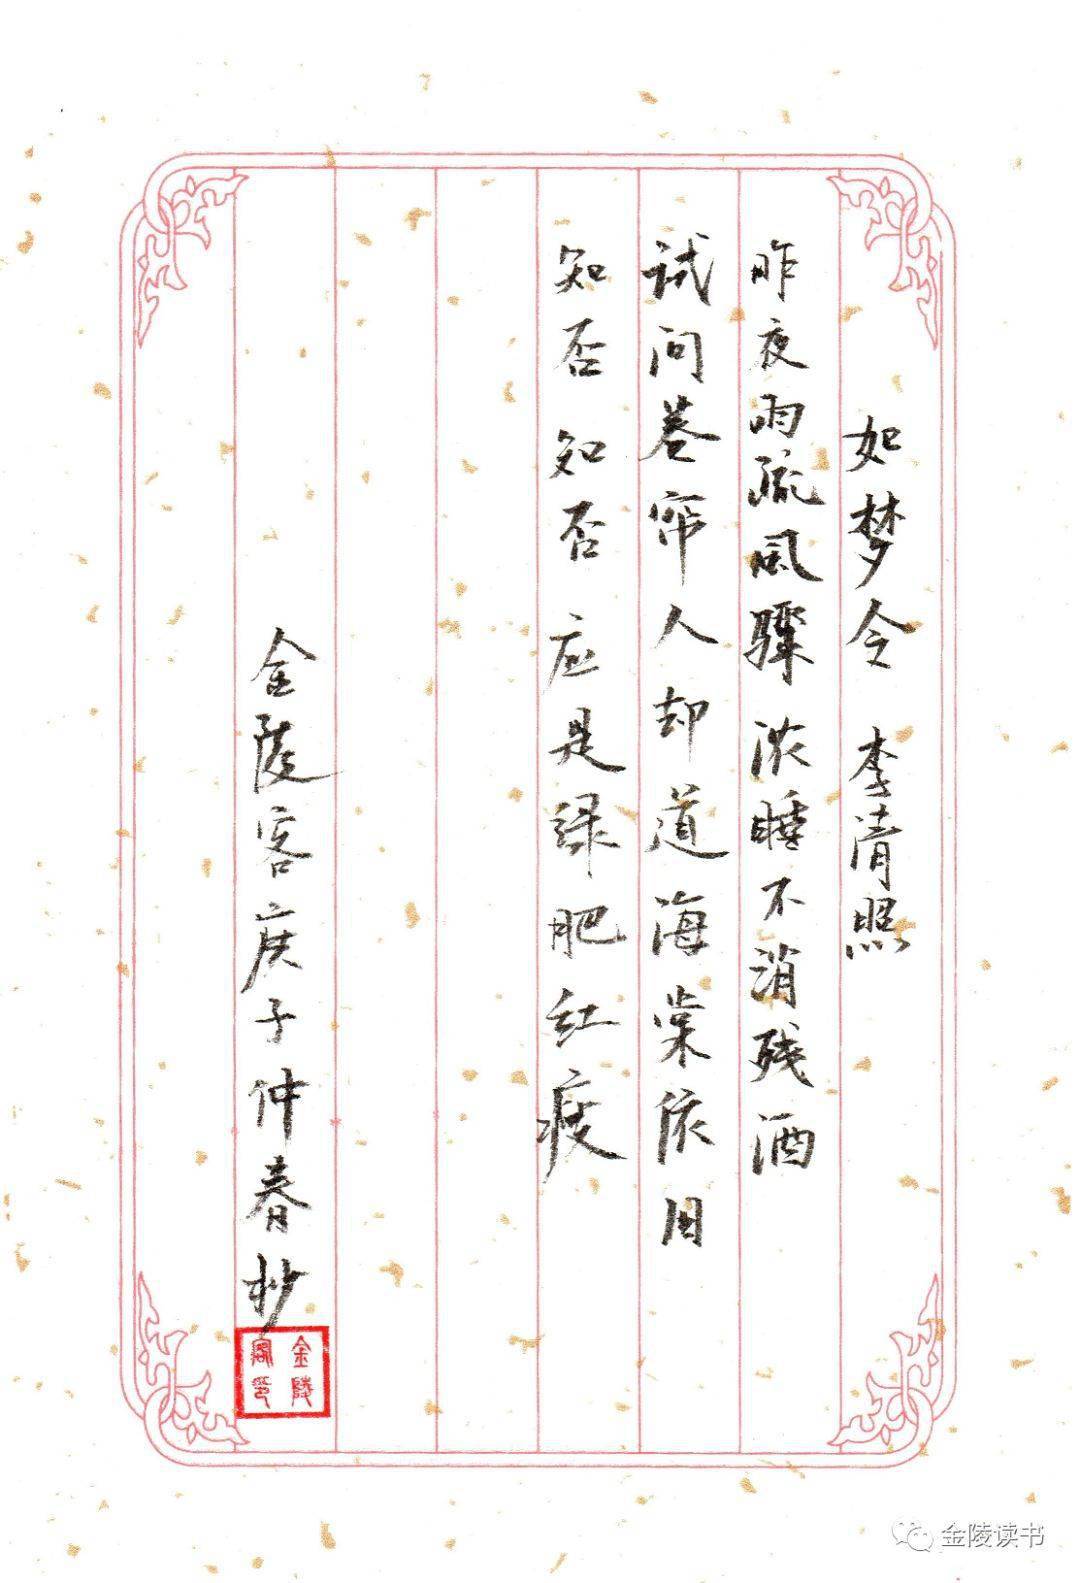 如梦令 李清照
昨夜雨疏風骤 浓睡不消残酒
试问卷帘人 却道海棠依旧
知否 知否 应是绿肥红瘦
金陵客庚子仲春抄
金陵客印
金陵读书